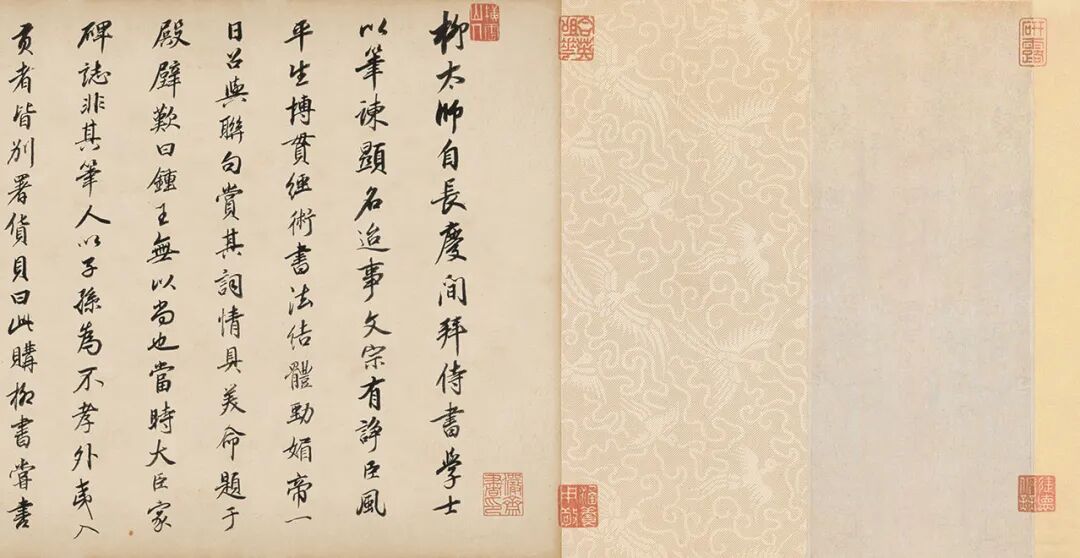 研露
含英咀華
橫雲山人
柳太師自長慶間拜侍書學士
以筆諫顯名迨事文宗有諍臣風
平生博貫經術書法結體勁媚帝一
日召與聯句賞其詞情具美命題于
殿壁歎曰鍾王無以尚也當時大臣家
碑誌非其筆人以子孫為不孝外夷入
貢者皆別署貨貝曰此購柳書嘗書